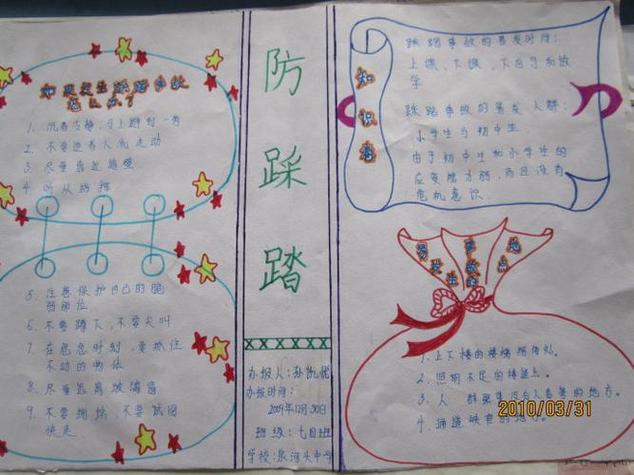 如果发生踩踏事故
怎么办？
1、沉着冷静，马上蹲到一旁
2、不要逆着人流走动
3、尽量靠近墙壁
4、听从指挥
5、注意保护自己的脆
弱部位
6、不要蹲下，不要尖叫
7、在危急时刻，要抓住
不动的物体
8、尽量远离玻璃窗
9、不要拥挤，不要试图
快走
防
踩
踏
办报人：孙凯悦
办报时间：
2009年12月30日
班级：七四班
学校：泉河头中学
知
识
卷
踩踏事故的易发时间：
上课、下课、下自习和放
学
踩踏事故的易发人群：
小学生与初中生
由于初中生和小学生的
应变能力弱，而且没有
危机意识.
易发生
事故的
地点
1、上下楼的楼梯拐角处。
2、照明不足的楼道上。
3、人群聚集没有人
的地方。
4、通道狭窄的地方。
2010/03/31